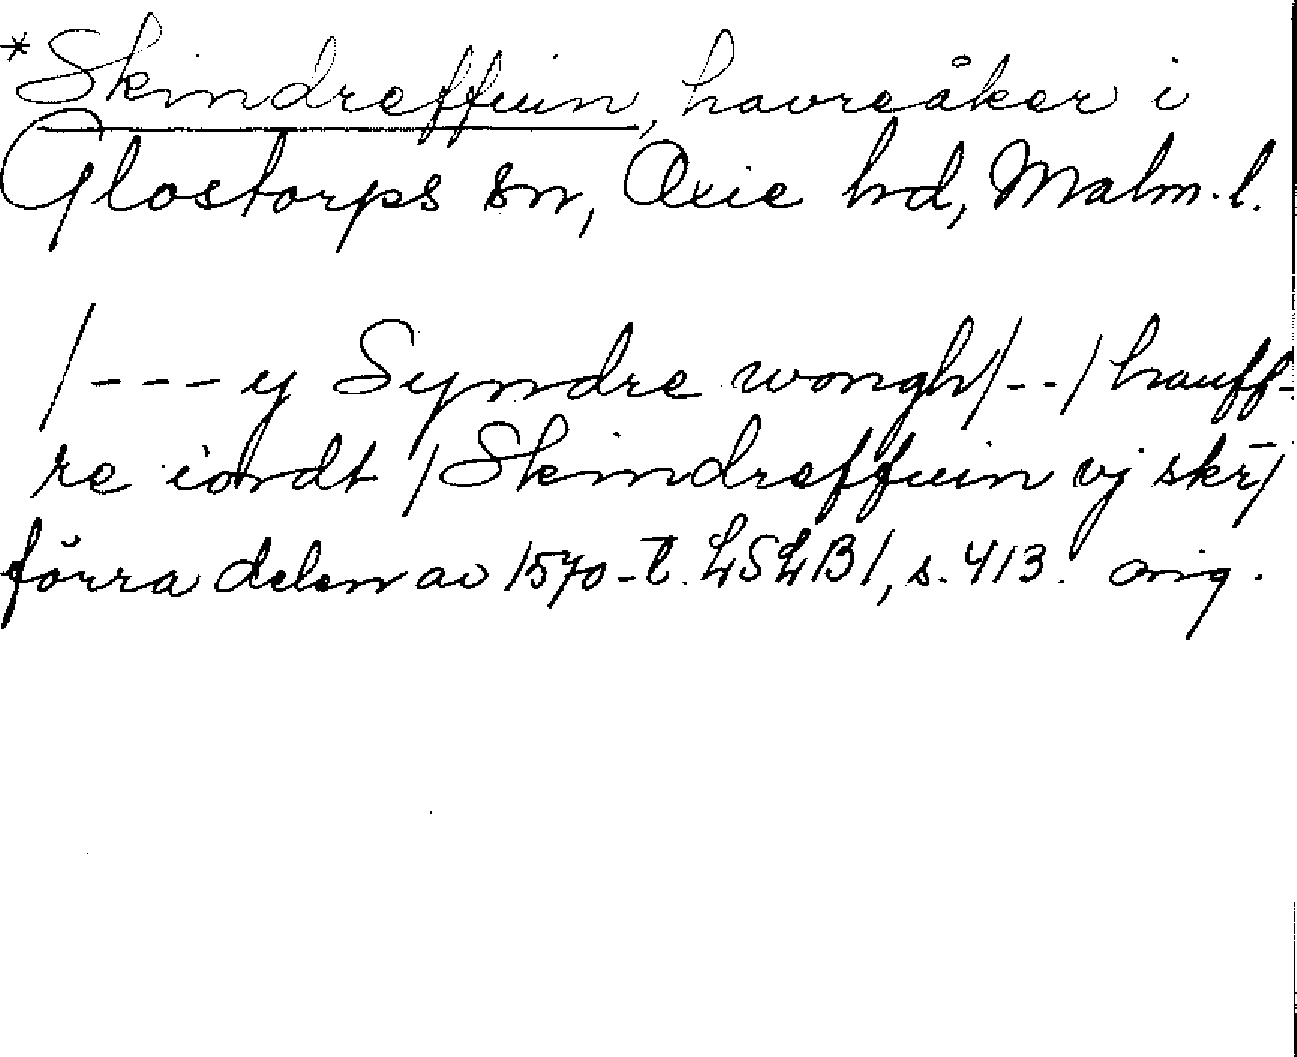 *Skindreffuin, havreåker i
Glostorps sn, Oxie hd, Malm. l.
/---y Syndre wongh/--/ hauff-
re iordt / Skindreffuin vj skr̄/
förra delen av 1570-t. LSLB1, s. 413. orig.